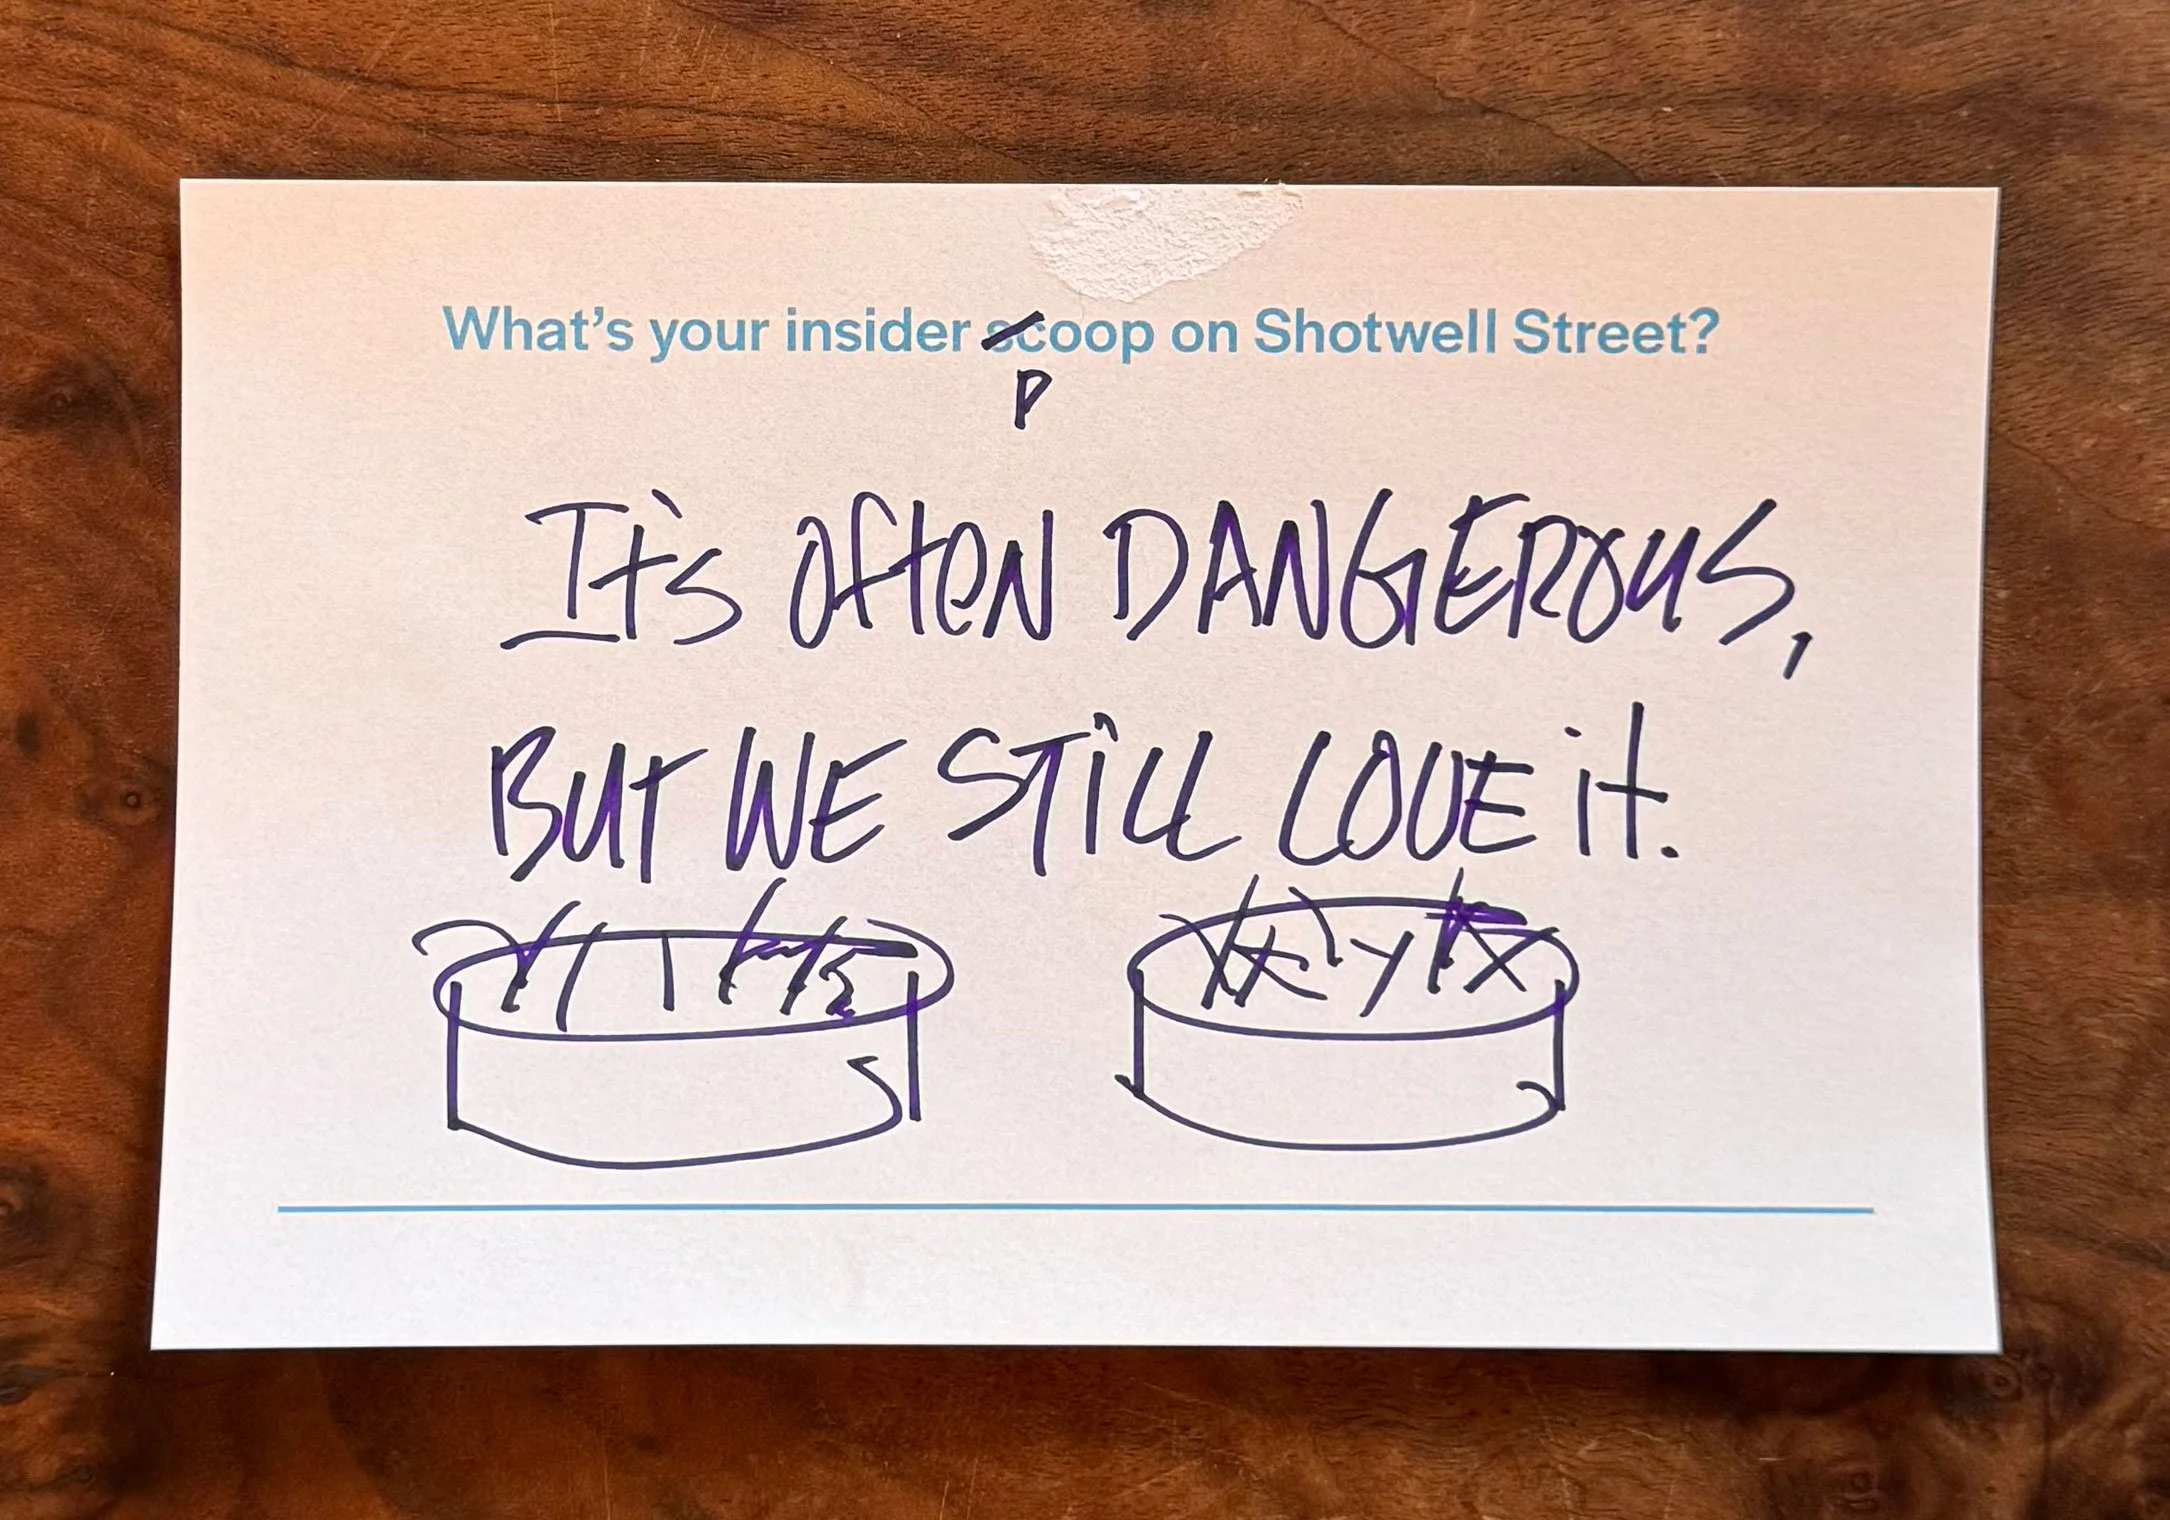 What's your insider scoop on Shotwell Street?
P
It's often DANGEROUS,
BUT WE STiLL LOVE it.